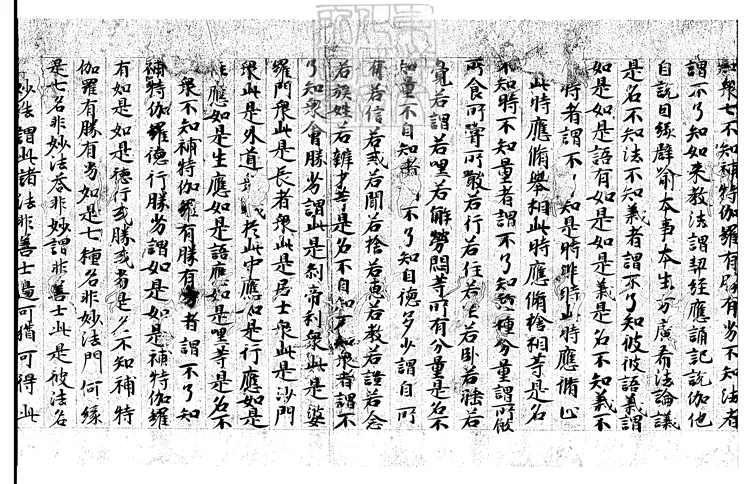 知衆七不知補特伽羅有勝有劣不知法者
謂不了知如來教法謂契經應誦記說伽他
自說因緣譬喻本事本生方廣希法論議
是名不知法不知義者謂不了知彼彼語義謂
如是如是語有如是如是義是名不知義不
時者謂不了知是時非時此時應脩止
此時應脩舉相此時應脩捨相等是名
不知時不知量者謂不了知種分量謂所飲
所食所甞所噉若行若住若坐若卧若睡若
覺若語若嘿若解勞悶等所有分量是名不
知量不自知者不了知自德多少謂自所
有若信若戒若聞若捨若惠若教若證若念
若族姓若辯才等是名不自知不知衆者謂不
了知衆會勝劣謂此是刹帝利衆此是婆
羅門衆此是長者衆此是居士衆此是沙門
衆此是外道於此中應如是行應如是
住應如是坐應如是語應如是嘿等是名不
衆不知補特伽羅有勝有劣者謂不了知
補特伽羅德行勝劣謂如是如是補特伽羅
有如是如是德行或勝或劣是名不知補特
伽羅有勝有劣如是七種名非妙法門何緣
是七名非妙法荅非妙謂非善士此是彼法名
妙法謂此諸法非善士邊可獲可得此